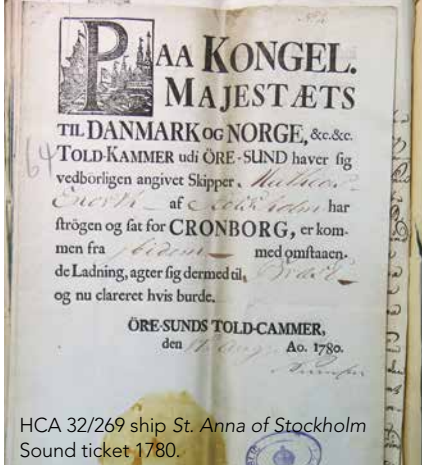 PAA KONGEL.
MAJESTÆTS
TIL DANMARK OG NORGE, &c.&c.
TOLD-KAMMER udi ÖRE-SUND haver sig
vedbörligen angivet Skipper
af Stockholm har
ströget og sat for CRONBORG, er kom-
men fra ibidem med omstaaen-
de Ladning, agter sig dermed til,
og nu clareret hvis burde.
ÖRE-SUNDS TOLD-CAMMER,
den Aug: Ao. 1780.
64
HCA 32/269 ship St. Anna of Stockholm
Sound ticket 1780.